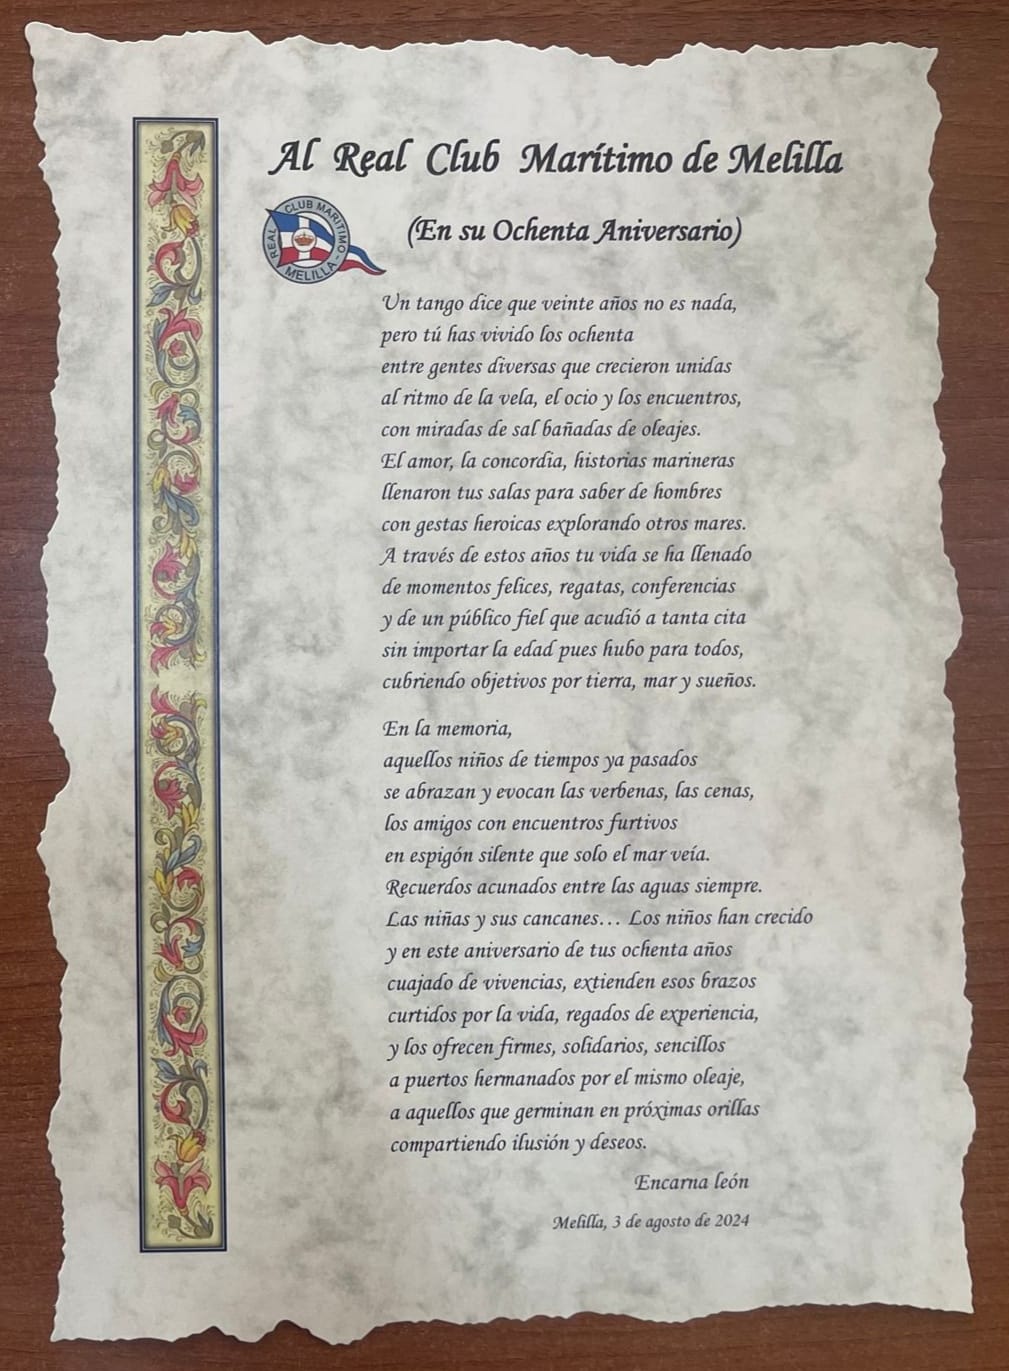 Al Real Club Marítimo de Melilla
REAL CLUB MARITIMO - MELILLA -
(En su Ochenta Aniversario)
Un tango dice que veinte años no es nada,
pero tú has vivido los ochenta
entre gentes diversas que crecieron unidas
al ritmo de la vela, el ocio y los encuentros,
con miradas de sal bañadas de oleajes.
El amor, la concordia, historias marineras
llenaron tus salas para saber de hombres
con gestas heroicas explorando otros mares.
A través de estos años tu vida se ha llenado
de momentos felices, regatas, conferencias
y de un público fiel que acudió a tanta cita
sin importar la edad pues hubo para todos,
cubriendo objetivos por tierra, mar y sueños.
En la memoria,
aquellos niños de tiempos ya pasados
se abrazan y evocan las verbenas, las cenas,
los amigos con encuentros furtivos
en espigón silente que solo el mar veía.
Recuerdos acunados entre las aguas siempre.
Las niñas y sus cancanes... Los niños han crecido
y en este aniversario de tus ochenta años
cuajado de vivencias, extienden esos brazos
curtidos por la vida, regados de experiencia,
y los ofrecen firmes, solidarios, sencillos
a puertos hermanados por el mismo oleaje,
a aquellos que germinan en próximas orillas
compartiendo ilusión y deseos.
Encarna león
Melilla, 3 de agosto de 2024